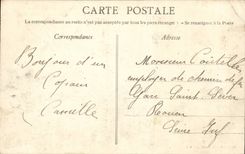 CARTE POSTALE
La correspondance au recto n'est pas acceptée par tous les pays étranger - Se renseigner à la Poste
Correspondance
Adresse
Bonjour d'un
Copain
Camille
Monsieur
employer de chemin de fer
Gare Saint-Sever
Rouen
Seine Inf